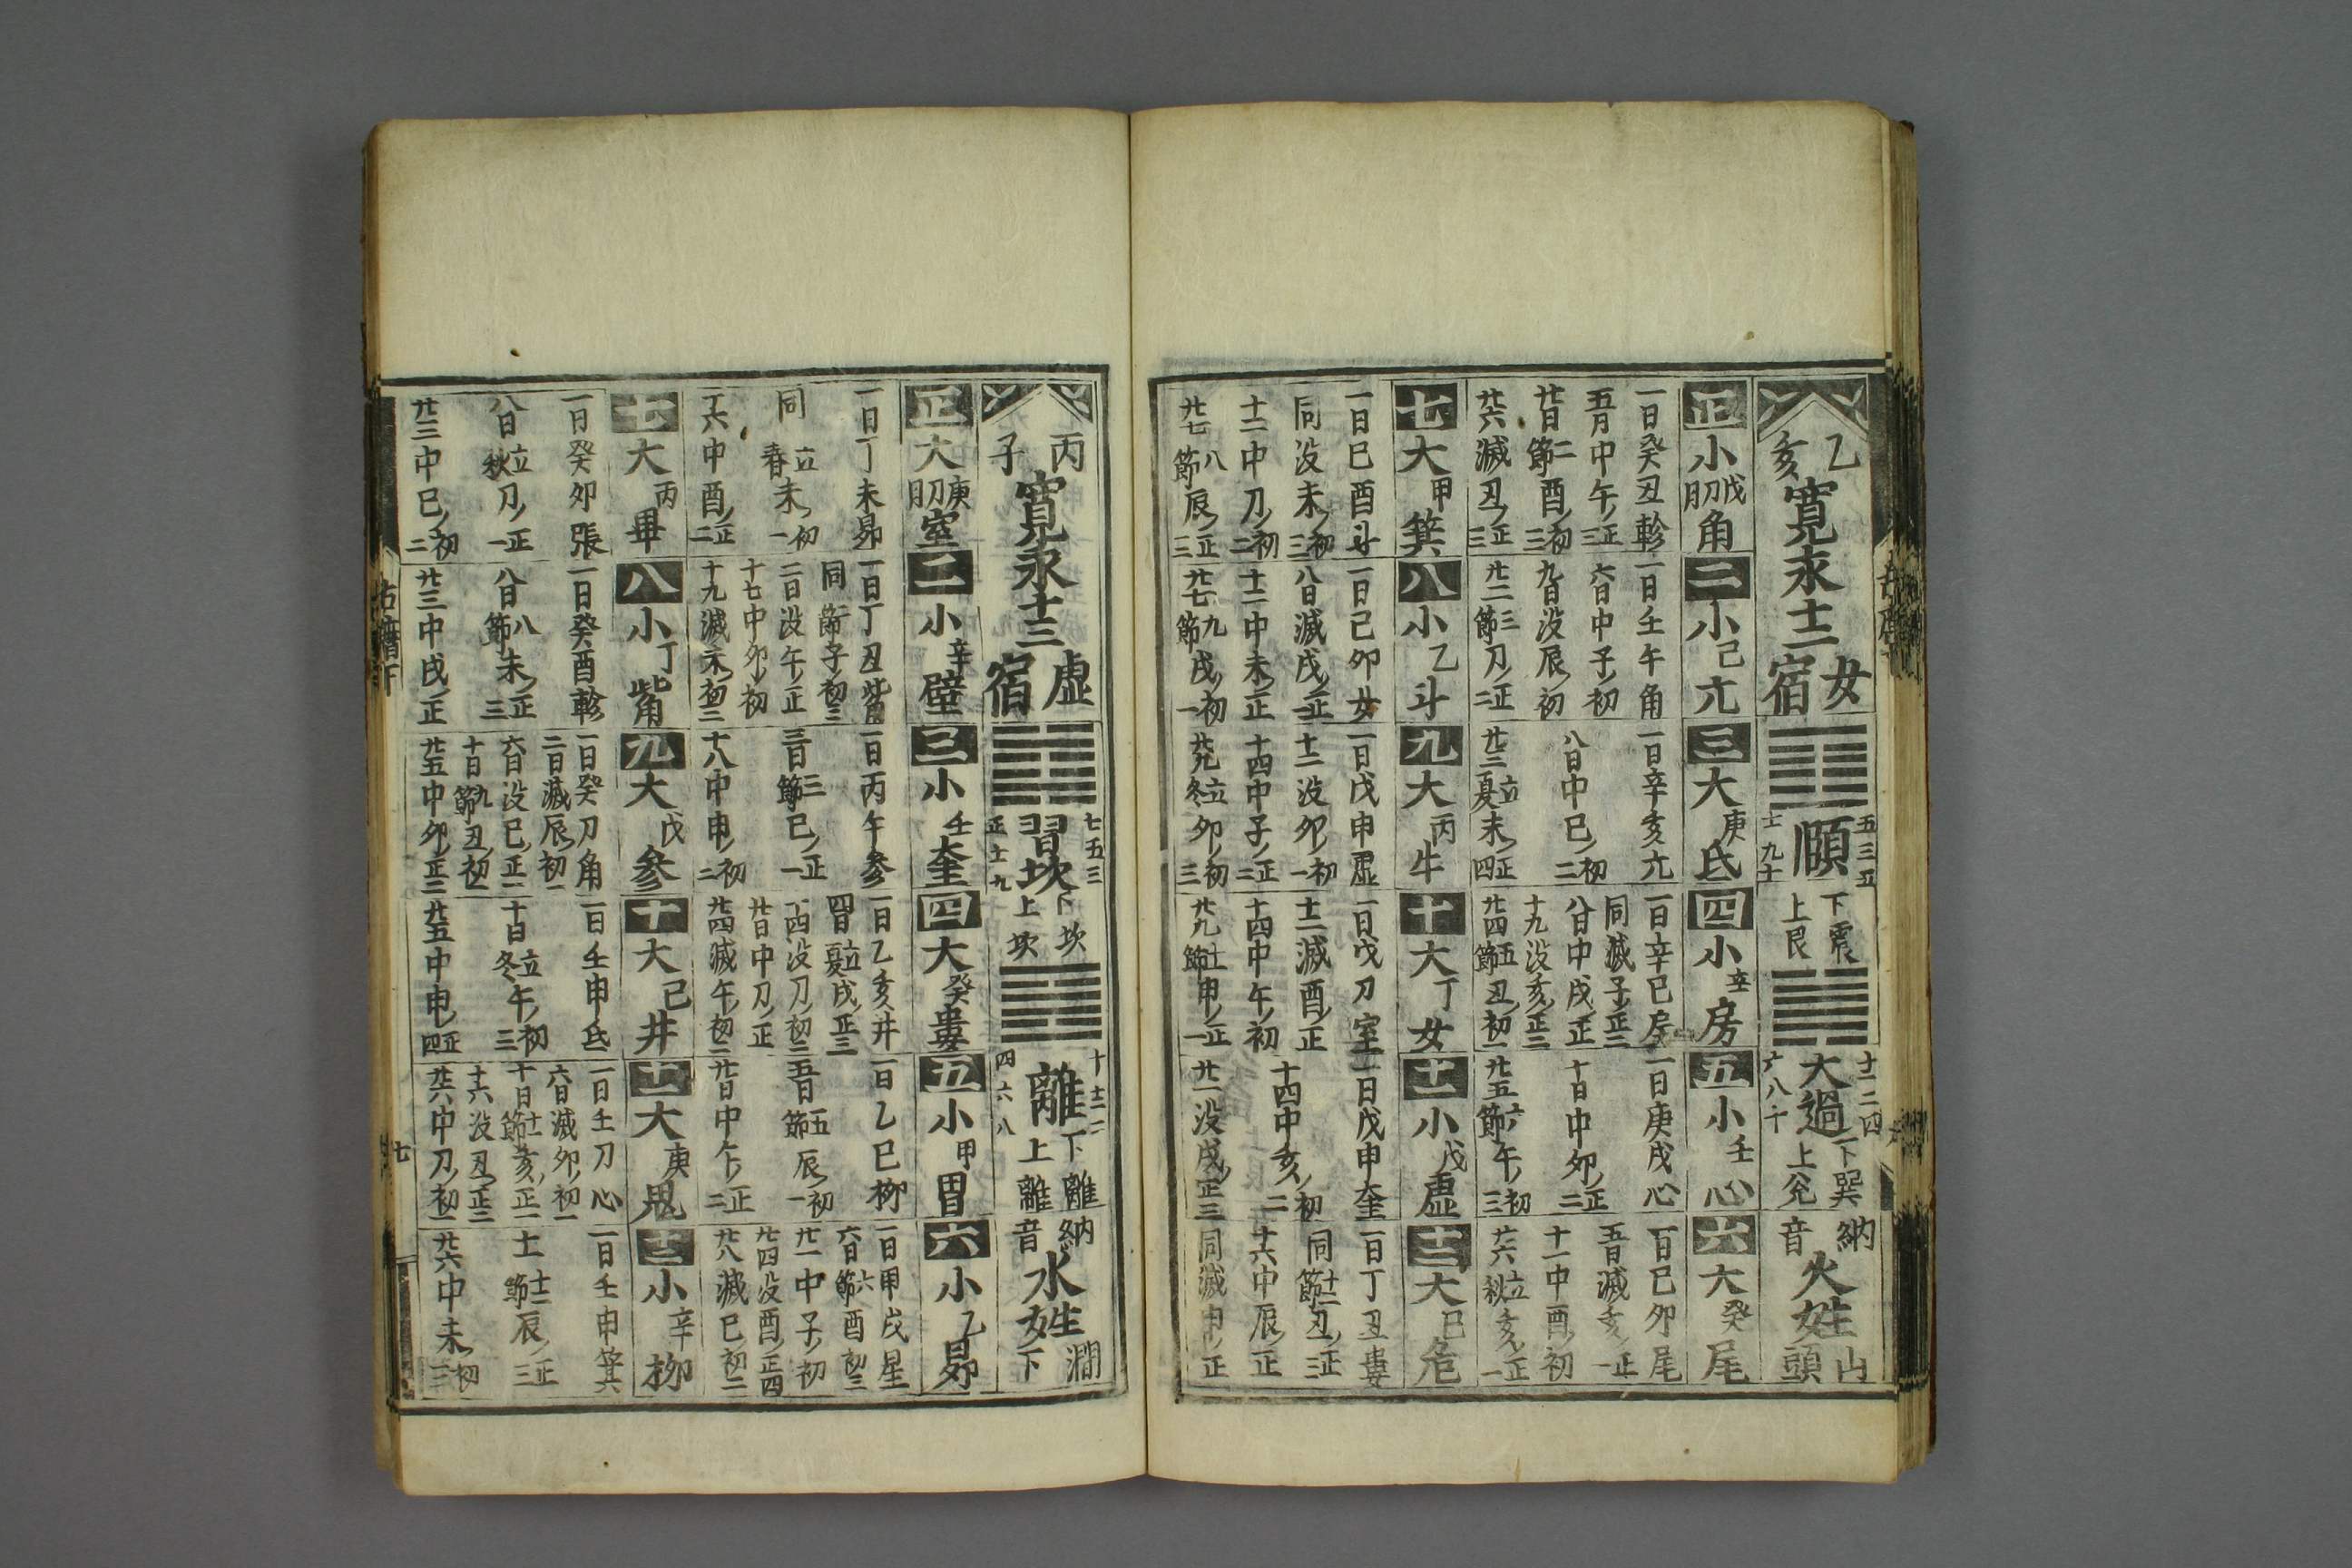 乙亥
寛永十二
女宿
頤
五三五
十九士
下震
上艮
大過
十二二四
六八十
下巽
上兊
納音
火姓
山頭
正小戊刀月角
一日癸丑軫
五日中午正三
廿日二節酉初三
廿六滅丑正三
二小己亢
一日壬午角
六日中子初
九日没辰初
廿二三節刀正二
三大庚氐
一日辛亥亢
八日中巳初二
廿三立夏未正四
四小辛房
一日辛巳房
同滅子正三
八日中戌正
十九没亥正三
廿四五節丑初二
五小壬心
一日庚戌心
十日中卯正二
廿五六節午初三
六大癸尾
一日己卯尾
五日滅亥正一
十一中酉初
廿六立秋亥正一
七大甲箕
一日己酉斗
同没未初三
十二中刀初二
廿七八節辰正三
八小乙斗
一日己卯女
八日滅戌正二
十二中未正二
廿七九節戌初一
九大丙牛
一日戊申虚
十二没卯初一
十四中子正二
廿九立冬卯初三
十大丁女
一日戊刀室
十二滅酉正
十四中午初
廿九十節申正一
十一小戊虚
一日戊申奎
十四中亥初二
廿一没戌正三
十二大己危
一日丁丑婁
同十二節丑正三
十六中辰正
同滅申正
丙子
寛永十三
虚宿
習坎
七五三
正十九
下坎
上坎
離
十十二二
四六八
下離
上離
納音
水姓
澗下
正大庚刀月室
一日丁未昴
同立春未初一
十六中酉正二
二小辛壁
一日丁丑觜
同二節子初三
二日没午正
十七中卯初
十九滅未初三
三小壬奎
一日丙午参
三日三節巳正一
十八中申初二
四大癸婁
一日乙亥井
四日立夏戌正三
十四没刀初三
廿日中刀正
廿四滅午初二
五小甲胃
一日乙巳柳
五日五節辰初一
廿日中午正二
六小乙昴
一日甲戌星
六日六節酉初三
廿一中子初
廿四没酉正四
廿八滅巳初二
七大丙畢
一日癸卯張
八日立秋刀正一
廿三中巳初二
八小丁觜
一日癸酉軫
八日八節未正三
廿三中戌正
九大戊参
一日癸刀角
二日滅辰初一
六日没巳正一
十日九節丑初二
廿五中卯正三
十大己井
一日壬申氐
十日立冬午初三
廿五中申正四
十一大庚鬼
一日壬刀心
六日滅卯初一
十日十一節亥正一
十六没丑正三
廿六中刀初一
十二小辛柳
一日壬申箕
十一十二節辰正三
廿六中未初三
七